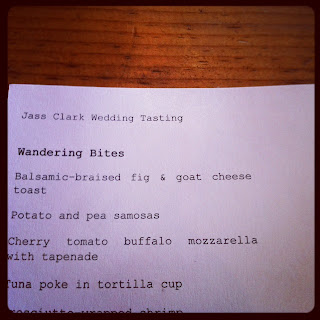 Jass Clark Wedding Tasting
Wandering Bites
Balsamic-braised fig & goat cheese
toast
Potato and pea samosas
Cherry tomato buffalo mozzarella
with tapenade
Tuna poke in tortilla cup
prosciutto wrapped shrimp